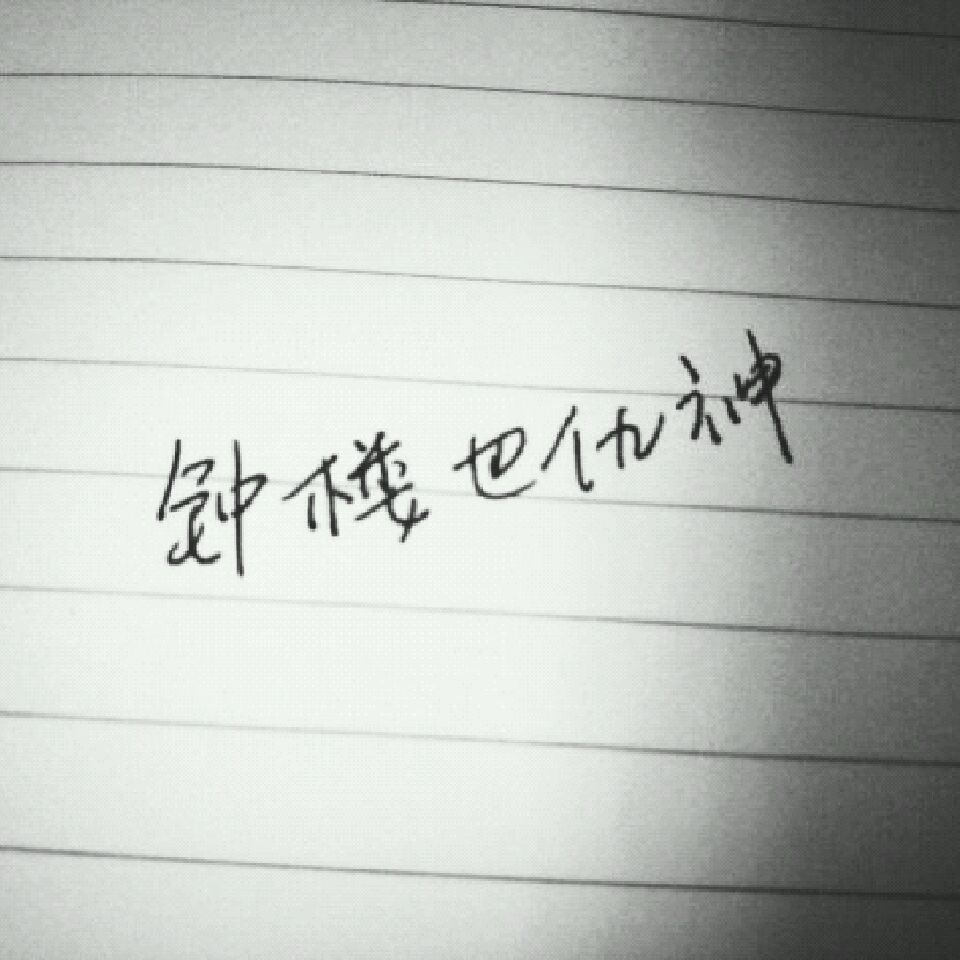 钟楼也仇神